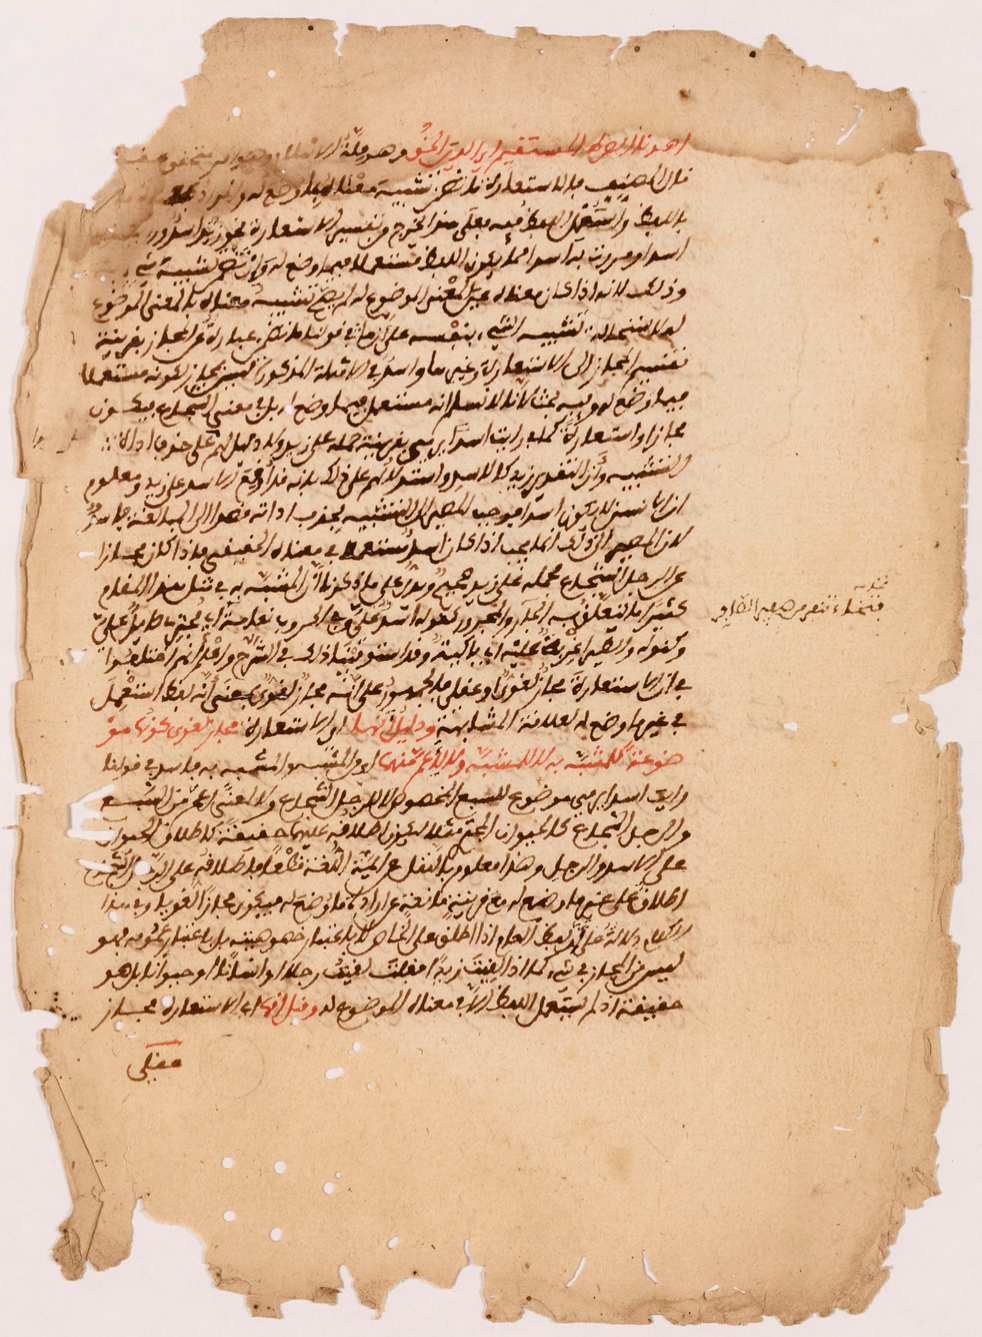 اهدنا الصراط المستقيم اي الدين الحق وهو ملة الاسلام وهو امر متحقق عقلا
قال المصنف فالاستعارة ما تضمن تشبيه معناه بما وضع له والمراد بمعناه ما عني
باللفظ واستعمل اللفظ فيه فعلى هذا يخرج من تفسير الاستعارة نحو زيد اسد ورايت زيدا
اسدا ومررت به اسدا مما يكون اللفظ مستعملا فيما وضع له وان تضمن تشبيه شيء
وذلك لانه اذا كان معناه عين المعنى الموضوع له لم يصح تشبيه معناه بالمعنى الموضوع
له لاستحالة تشبيه الشيء بنفسه على ان ما في قولنا ما تضمن عبارة عن المجاز بقرينة
تقسيم المجاز الى الاستعارة وغيرها واسد في الامثلة المذكورة ليس بمجاز لكونه مستعملا
فيما وضع له وفيه بحث لانا لا نسلم انه مستعمل فيما وضع له بل في معنى الشجاع فيكون
مجازا واستعارة كما في رايت اسدا يرمي بقرينة حمله على زيد ولا دليل لهم على حذف اداة
التشبيه وان التقدير زيد كالاسد واستدلالهم على ذلك بانه قد اوقع الاسد على زيد ومعلوم
ان الانسان لا يكون اسدا فوجب المصير الى التشبيه بحذف اداته قصدا الى المبالغة فاسد
لان المصير الى ذلك انما يجب اذا كان اسد مستعملا في معناه الحقيقي فاذا كان مجازا
عن الرجل الشجاع فحمله على زيد صحيح ويدل على ما ذكرنا ان المشبه به في مثل هذا المقام
كثيرا ما يتعلق به الجار والمجرور كقوله اسد علي وفي الحروب نعامة اي مجترئ صائل علي
وكقوله والطير اغربة عليه اي باكية وقد استوفينا ذلك في الشرح واعلم انهم اختلفوا
في ان الاستعارة مجاز لغوي او عقلي فالجمهور على انه مجاز لغوي بمعنى انه لفظ استعمل
في غير ما وضع له لعلاقة المشابهة ودليل انها اي الاستعارة مجاز لغوي كونها مو
ضوعة للمشبه به لا للمشبه ولا للاعم منهما اي من المشبه والمشبه به فاسد في قولنا
رايت اسدا يرمي موضوع للسبع المخصوص لا للرجل الشجاع ولا لمعنى اعم من السبع
والرجل الشجاع كالحيوان المجترئ مثلا ليكون اطلاقه عليهما حقيقة كاطلاق الحيوان
على الاسد والرجل وهذا معلوم بالنقل عن ائمة اللغة قطعا فاطلاقه على الرجل الشجاع
اطلاق على غير ما وضع له مع قرينة مانعة عن ارادة ما وضع له فيكون مجازا لغويا وفي هذا
الكلام دلالة على ان لفظ العام اذا اطلق على الخاص لا باعتبار خصوصيته بل باعتبار عمومه فهو
ليس من المجاز في شيء كما اذا لقيت زيدا فقلت لقيت رجلا او انسانا او حيوانا بل هو
حقيقة اذ لم يستعمل اللفظ الا في معناه الموضوع له وقيل انها اي الاستعارة مجاز
عقلي